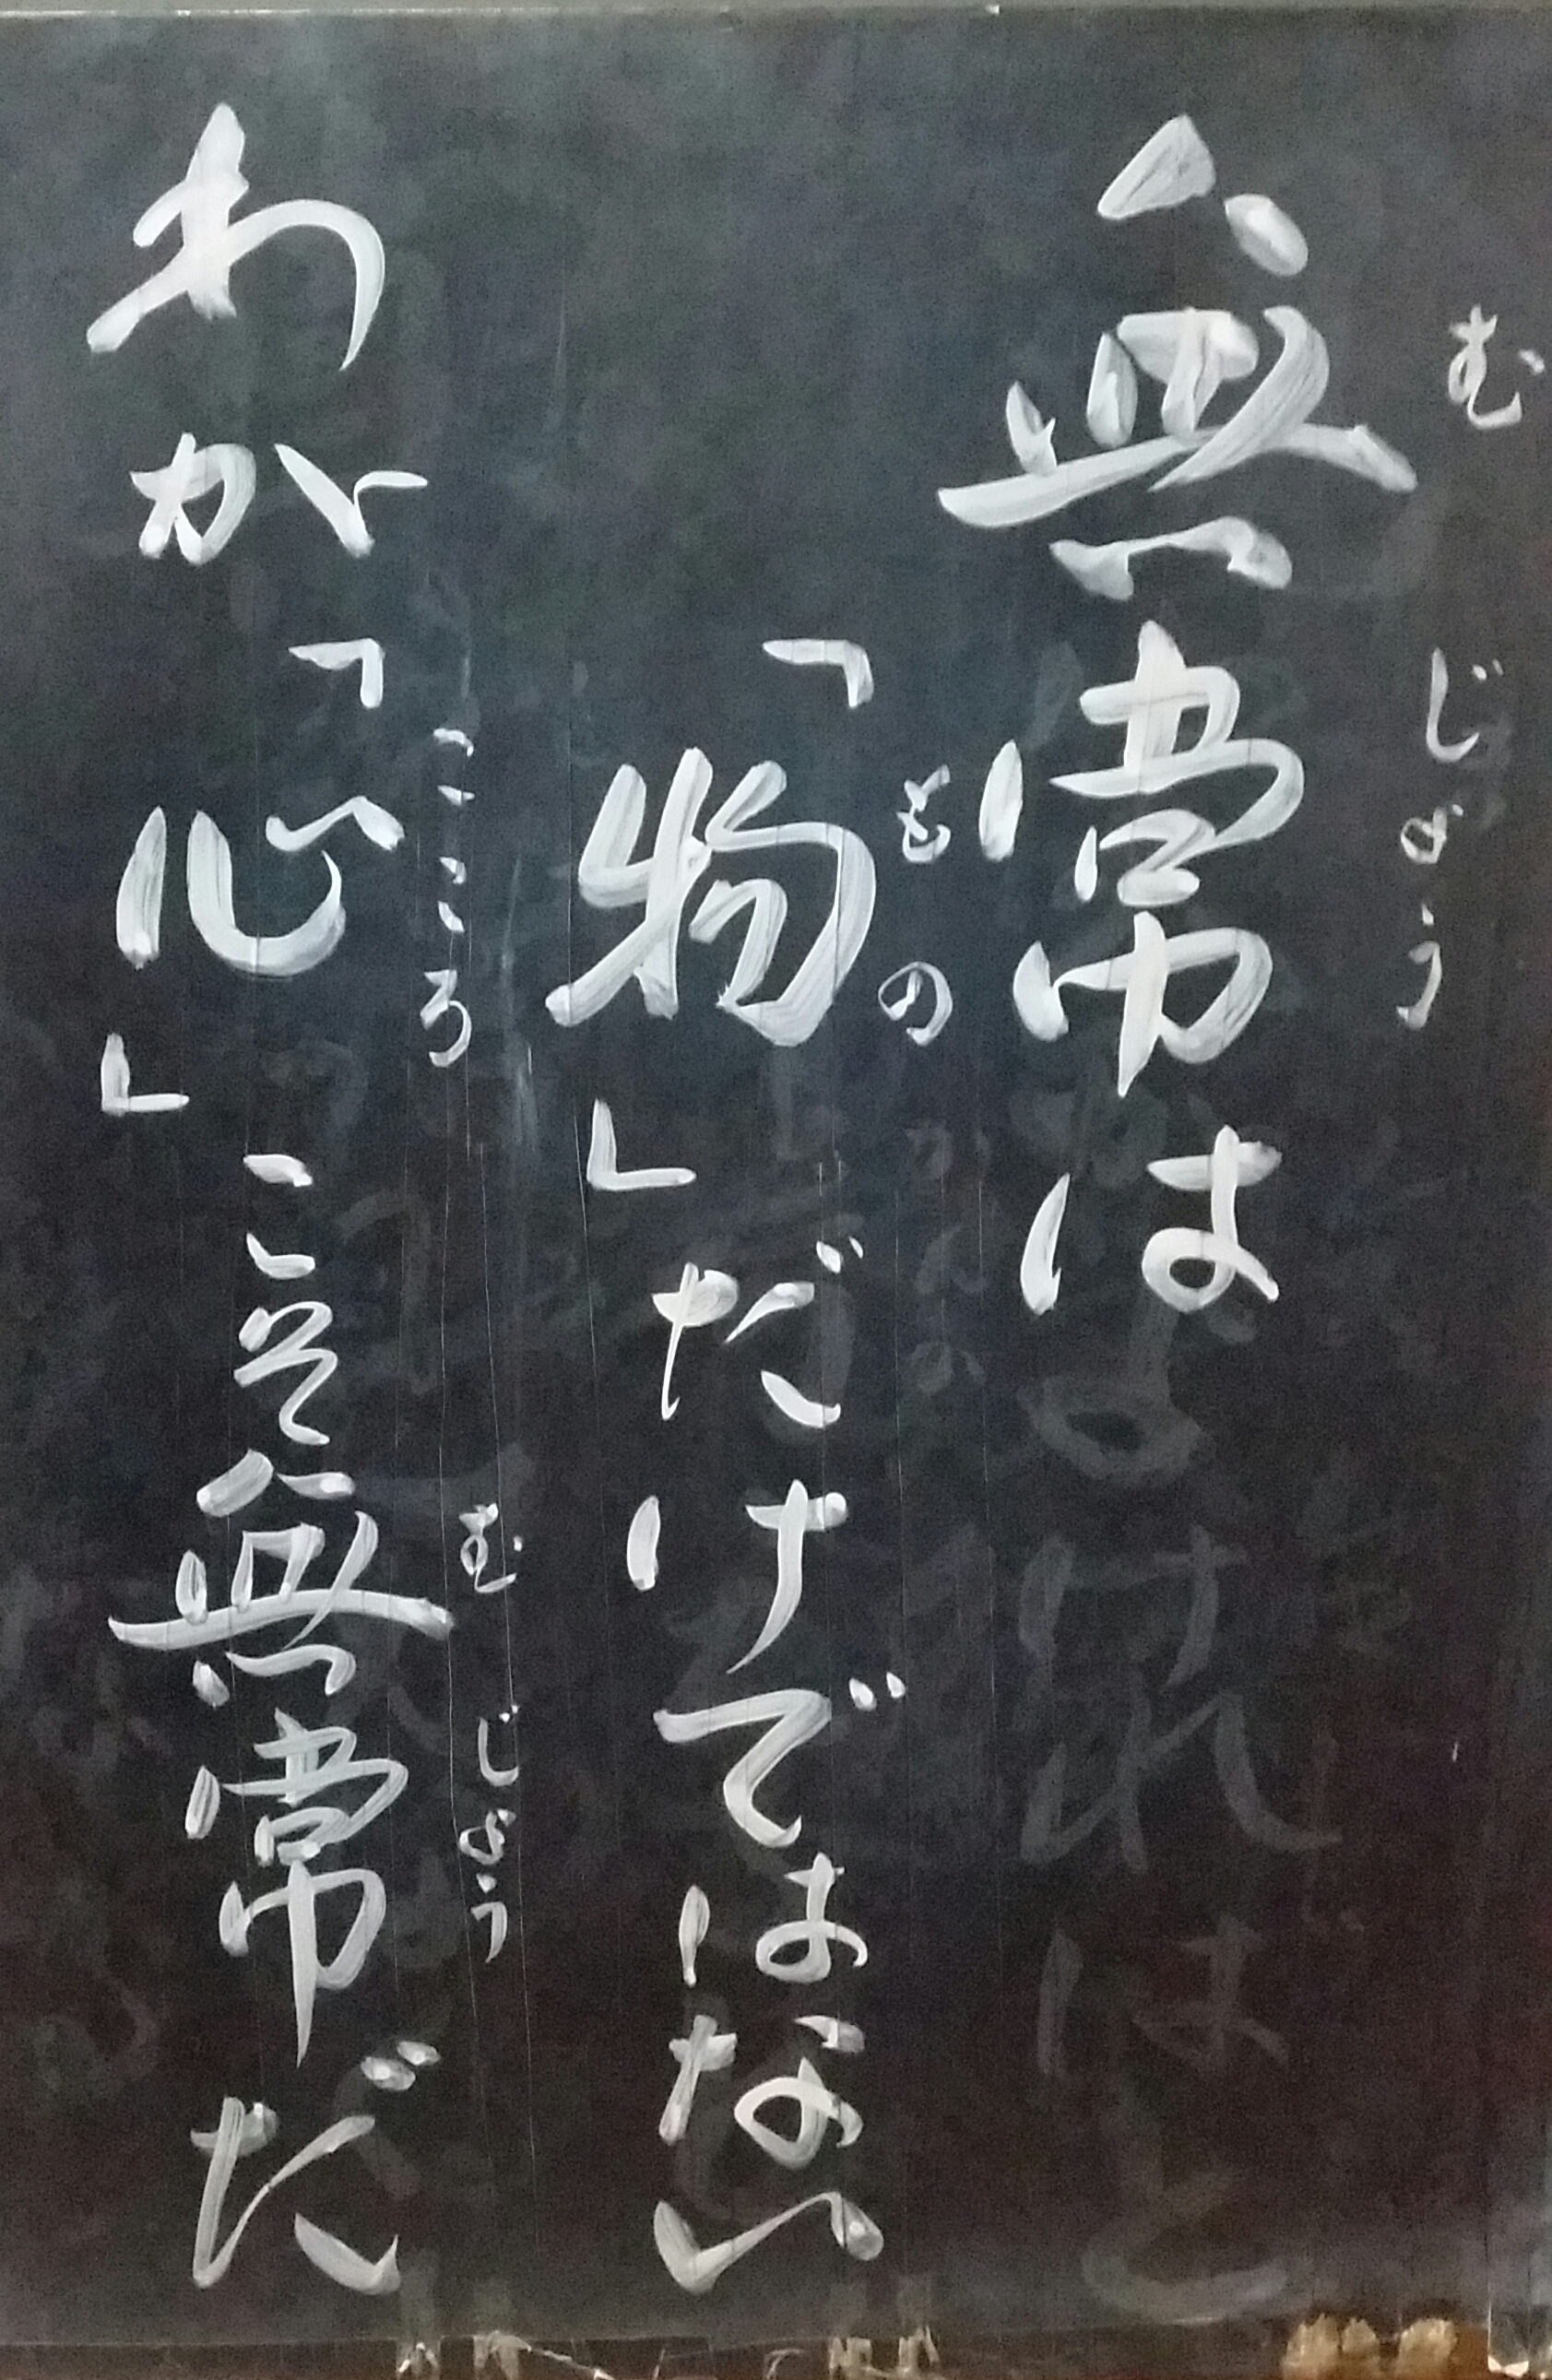 無常は
むじょう
「物」だけではない
もの
わが「心」こそ無常だ
こころ
むじょう